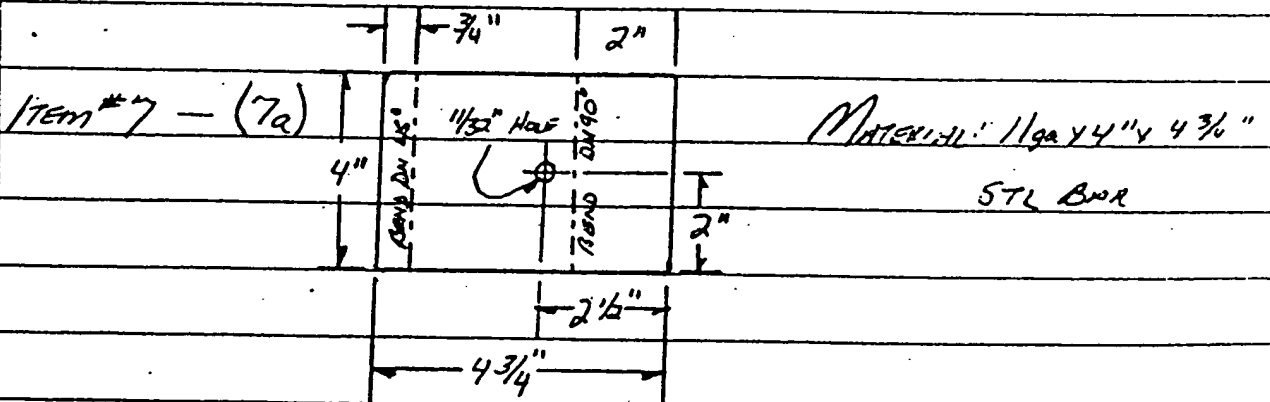 3/4"
2"
Item #7 — (7a)
4"
BEND DN 45°
11/32" HOLE
BEND DN 90°
2"
MATERIAL: 11ga x 4" x 4 3/4"
STL BAR
2 1/2"
4 3/4"